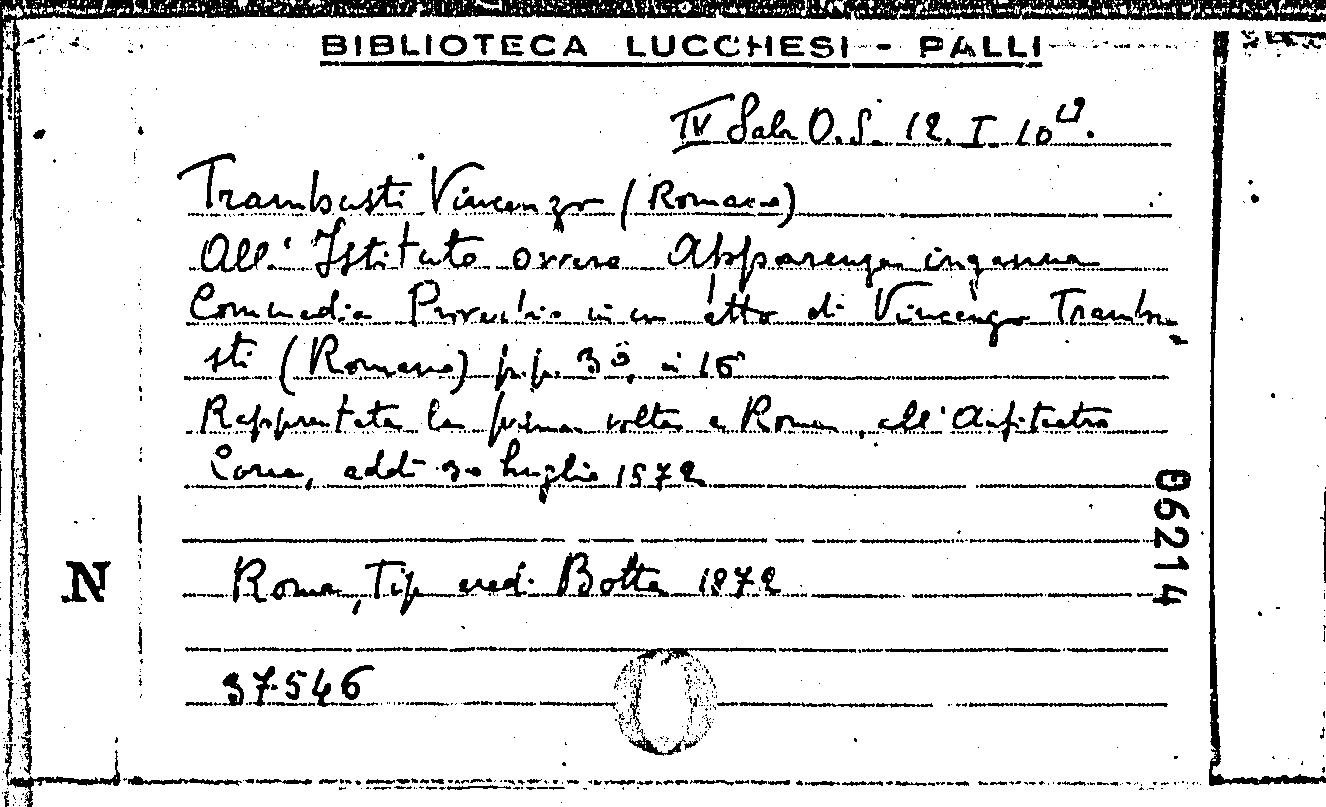 BIBLIOTECA LUCCHESI - PALLI
IV Sala O.S. 12. I. 10
Trambusti Vincenzo (Romano)
All' Istituto ovvero Apparenza inganna
Commedia Proverbio in un atto di Vincenzo Trambu-
sti (Romano) p.p. 30, in 16°
Rappntata la prima volta a Roma, all'Anfiteatro
Corea, addì 30 luglio 1872
N
06214
Roma, Tip eredi Botta 1872
37546